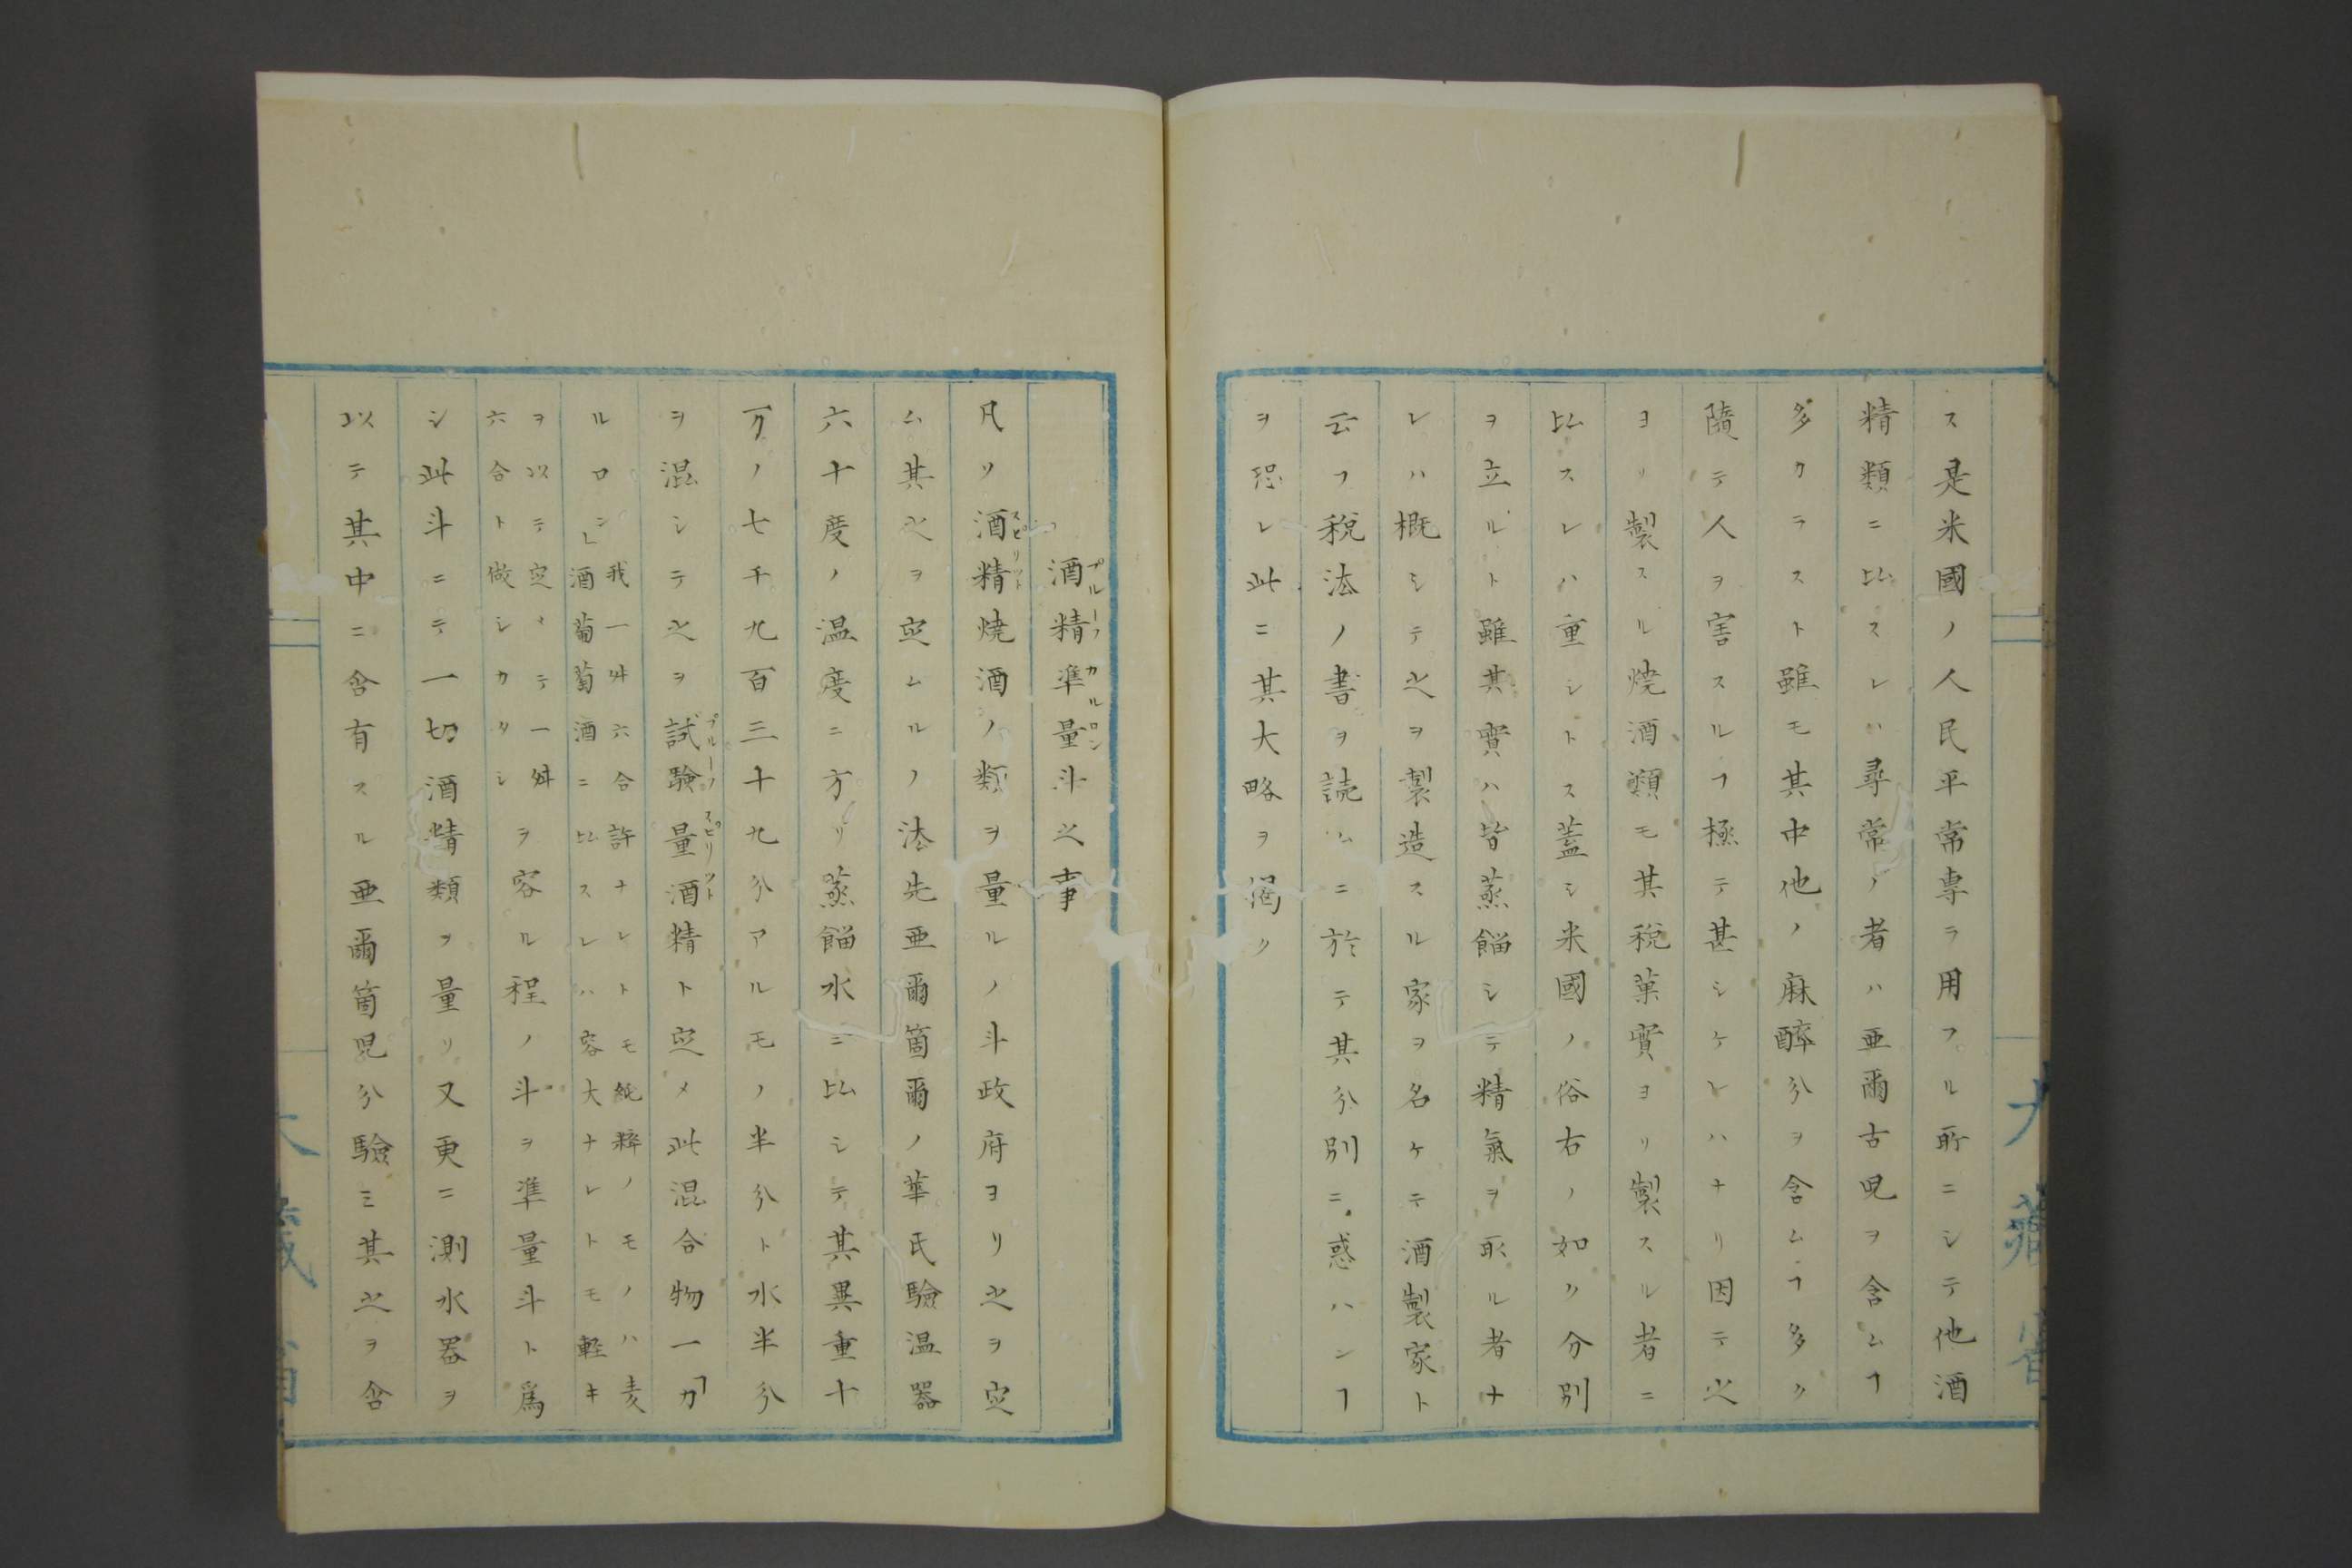 ス是米國ノ人民平常専ラ用フル所ニシテ他酒
精類ニ比スレハ尋常ノ者ハ亜爾古児ヲ含ムヿ
多カラスト雖モ其中他ノ麻醉分ヲ含ムヿ多ク
隨テ人ヲ害スルヿ極テ甚シケレハナリ因テ之
ヨリ製スル焼酒類モ其税菓實ヨリ製スル者ニ
比スレハ重シトス蓋シ米國ノ俗右ノ如ク分別
ヲ立ルト雖其實ハ皆蒸餾シテ精氣ヲ取ル者ナ
レハ概シテ之ヲ製造スル家ヲ名ケテ酒製家ト
云フ税法ノ書ヲ読ムニ於テ其分別ニ惑ハンヿ
ヲ恐レ此ニ其大略ヲ掲ク
大藏省
酒精準量斗之事
プルーフ カルロン
凡ソ酒精焼酒ノ類ヲ量ルノ斗政府ヨリ之ヲ定
スピリット
ム其之ヲ定ムルノ法先亜爾箇爾ノ華氏驗温器
六十度ノ温度ニ方リ蒸餾水ニ比シテ其異重十
万ノ七千九百三十九分アルモノ半分ト水半分
ヲ混シテ之ヲ試驗量酒精ト定メ此混合物一「カ
プルーフ スピリット
ルロン」我一舛六合許ナレトモ純粹ノモノハ麦
酒葡萄酒ニ比スレハ容大ナレトモ軽キ
ヲ以テ定メテ一舛
六合ト做シカタシ
ヲ容ル程ノ斗ヲ準量斗ト爲
シ此斗ニテ一切酒精類ヲ量リ又更ニ測水器ヲ
以テ其中ニ含有スル亜爾箇児分驗ミ其之ヲ含
大藏省